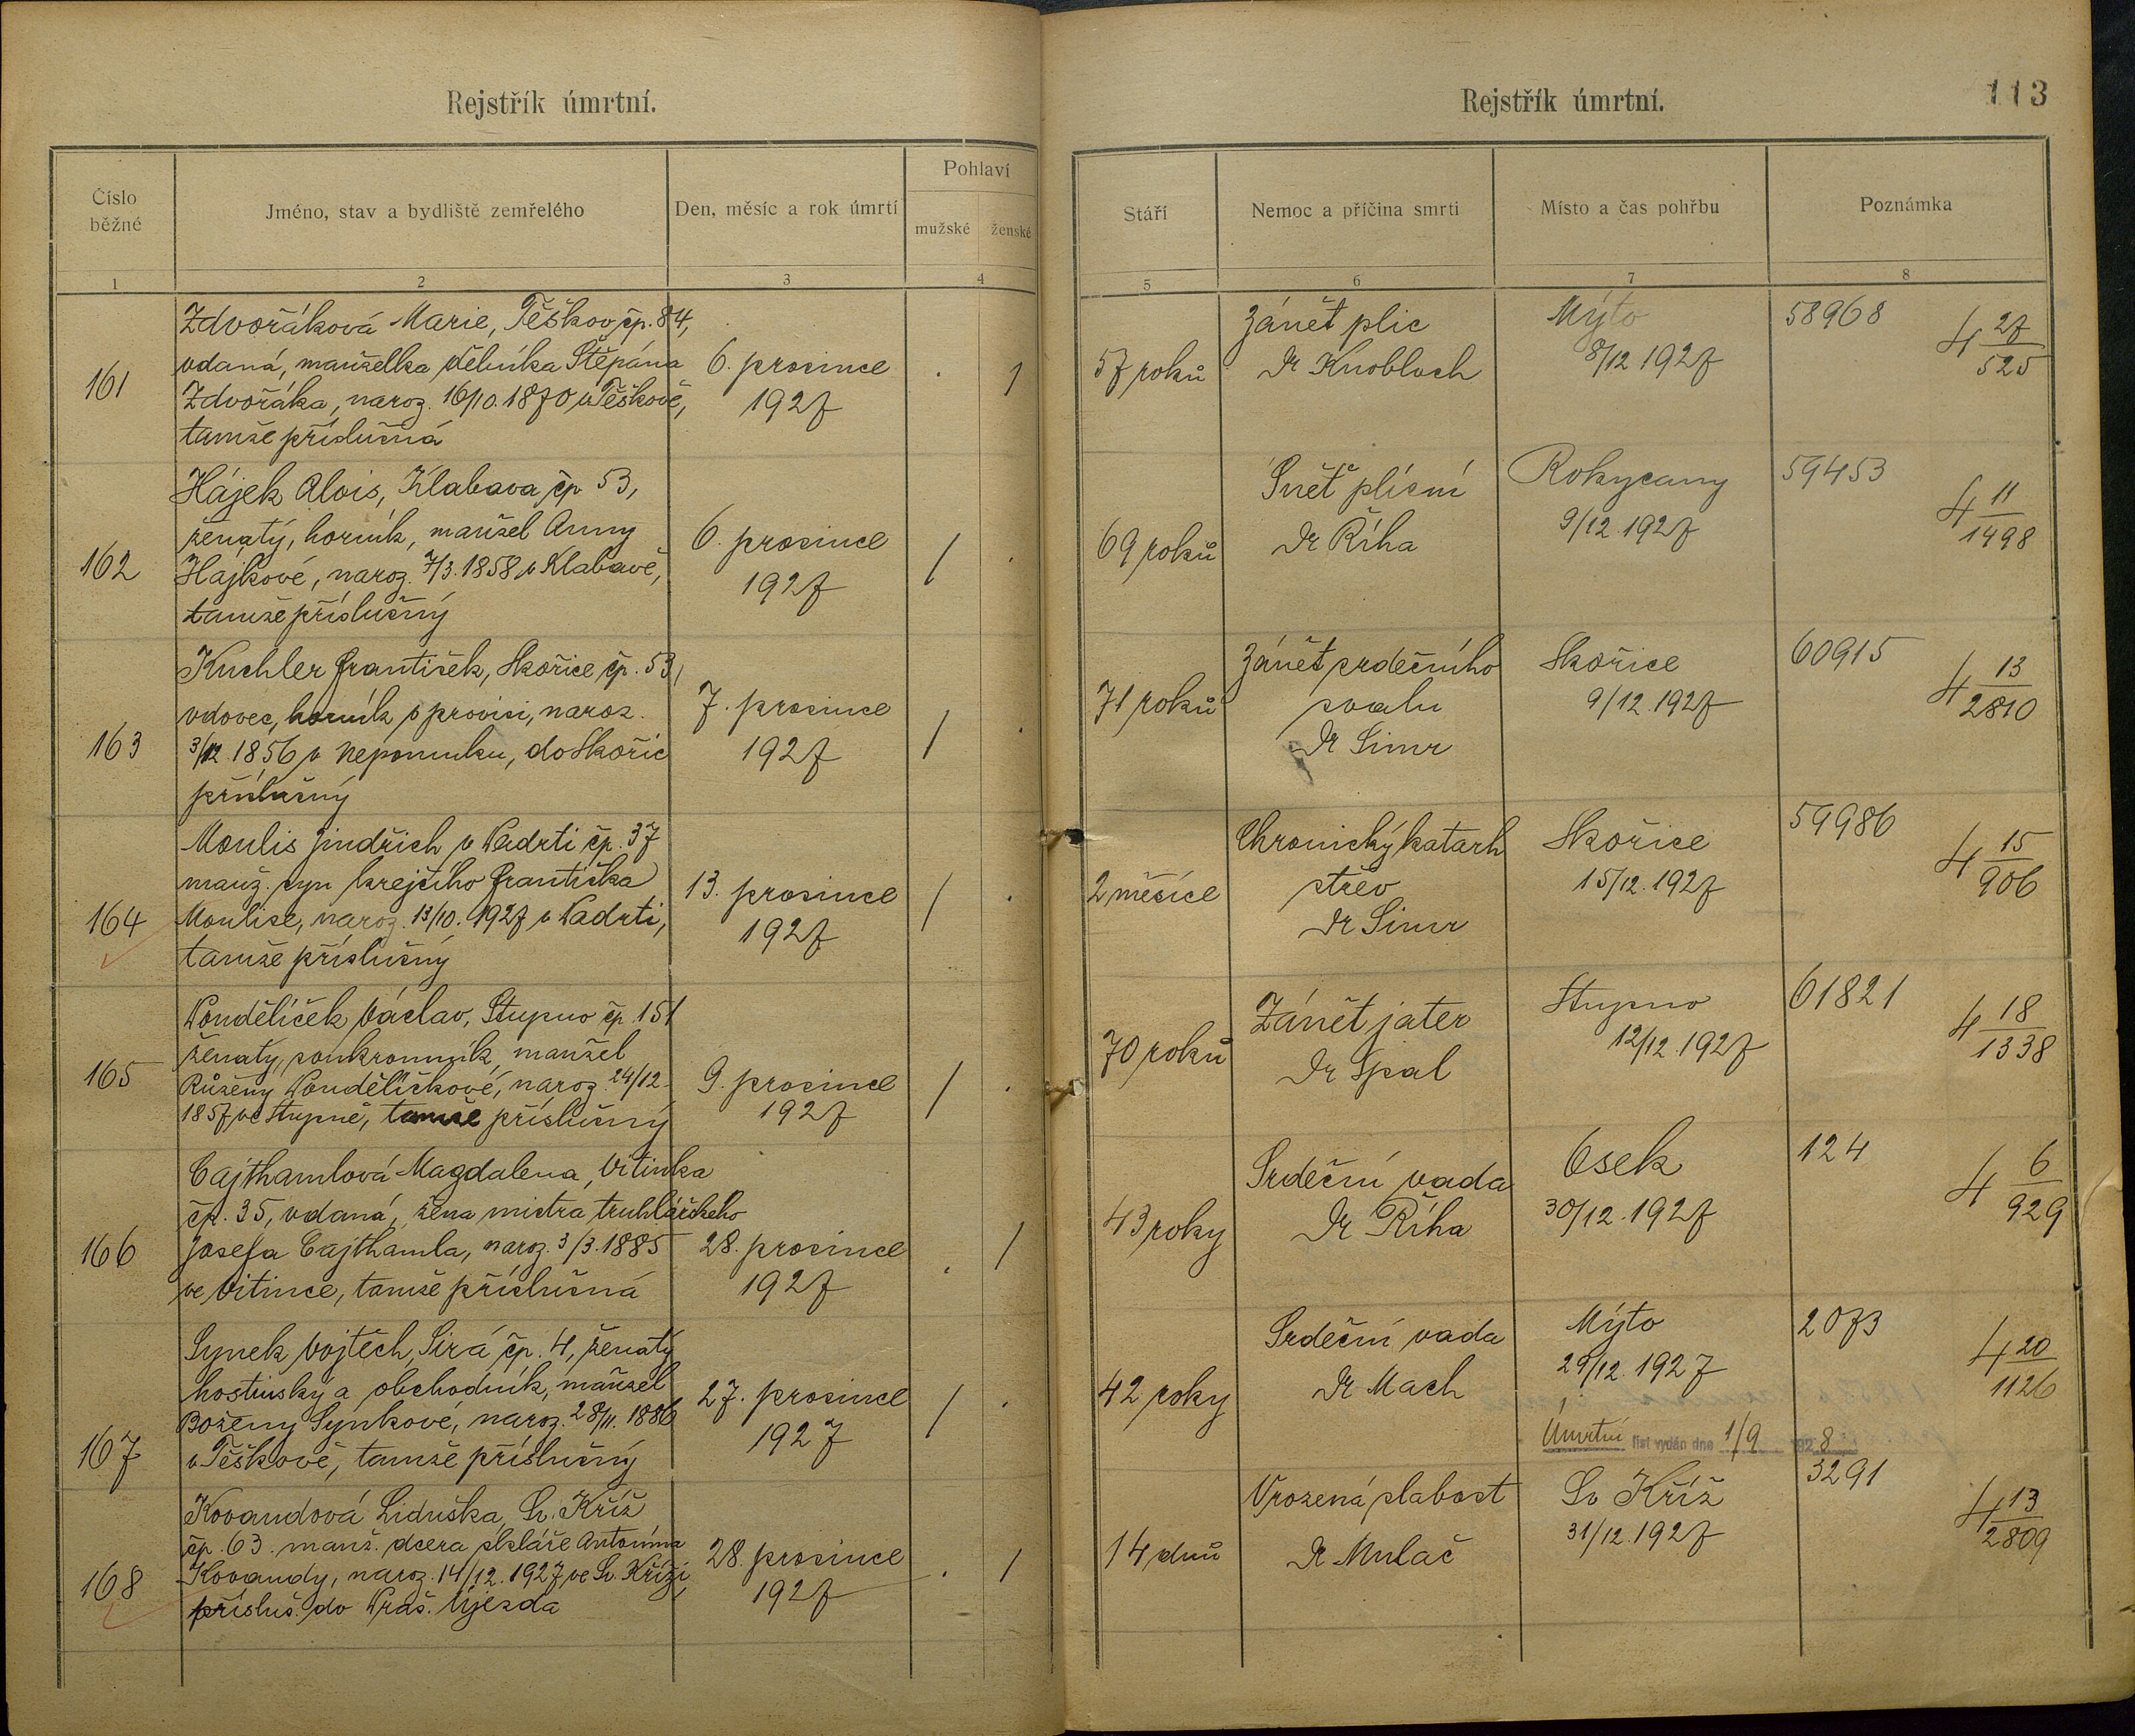 Rejstřík úmrtní.
Číslo běžné
Jméno, stav a bydliště zemřelého
Den, měsíc a rok úmrtí
Pohlaví
mužské
ženské
1
2
3
4
161
Zdvořáková Marie, Těškov čp. 84,
vdaná, manželka dělníka Štěpána
Zdvořáka, naroz. 16/10.1870 v Těškově,
tamže příslušná
6. prosince
1927
. 1
162
Hájek Alois, Klabava čp 53,
ženatý, horník, manžel Anny
Hajkové, naroz. 7/3.1858 v Klabavě,
tamže příslušný
6. prosince
1927
1 .
163
Kuchler František, Skořice čp. 53,
vdovec, horník v provisi, naroz.
3/12.1856 v Nepomuku, do Skořic
příslušný
7. prosince
1927
1 .
164
Moulis Jindřich v Padrti čp. 37
manž. syn krejčího Františka
Moulise, naroz. 13/10.1927 v Padrti,
tamže příslušný
13. prosince
1927
1 .
165
Vondělíček Václav, Stupno čp 151
ženatý, soukromník, manžel
Růženy Vondělíčkové, naroz. 24/12.
1857 ve Stupně, tamže příslušný
9. prosince
1927
1 .
166
Cajthamlová Magdalena, Vitinka
čp. 35, vdaná, žena mistra truhlářského
Josefa Cajthamla, naroz. 3/3.1885
ve Vitince, tamže příslušná
28. prosince
1927
. 1
167
Synek Vojtěch, Sirá čp. 4, ženatý
hostinský a obchodník, manžel
Boženy Synkové, naroz. 28/11.1886
v Těškově, tamže příslušný
27. prosince
1927
1 .
168
Kovandová Liduška, Sv. Kříž
čp. 63. manž. dcera skláře Antonína
Kovandy, naroz. 14/12.1927 ve Sv. Kříži,
přísluš. do Praš. Újezda
28. prosince
1927
. 1
Rejstřík úmrtní.
113
Stáří
Nemoc a příčina smrti
Místo a čas pohřbu
Poznámka
5
6
7
8
57 roků
Zánět plic
Dr Knobloch
Mýto
8/12 1927
58968
4 27/525
69 roků
Sněť plicní
Dr Říha
Rokycany
9/12.1927
59453
4 11/1498
71 roků
Zánět srdečního
svalu
Dr Simr
Skořice
9/12.1927
60915
4 13/2810
2 měsíce
Chronický katarh
střev
Dr Simr
Skořice
15/12.1927
59986
4 15/906
70 roků
Zánět jater
Dr Spal
Stupno
12/12.1927
61821
4 18/1338
43 roky
Srdeční vada
Dr Říha
Osek
30/12.1927
124
4 6/929
42 roky
Srdeční vada
Dr Mach
Mýto
29/12.1927
2073
4 20/1126
Úmrtní list vydán dne 1/9 1928
14 dnů
Vrozená slabost
Dr Mulač
Sv Kříž
31/12.1927
3291
4 13/2809